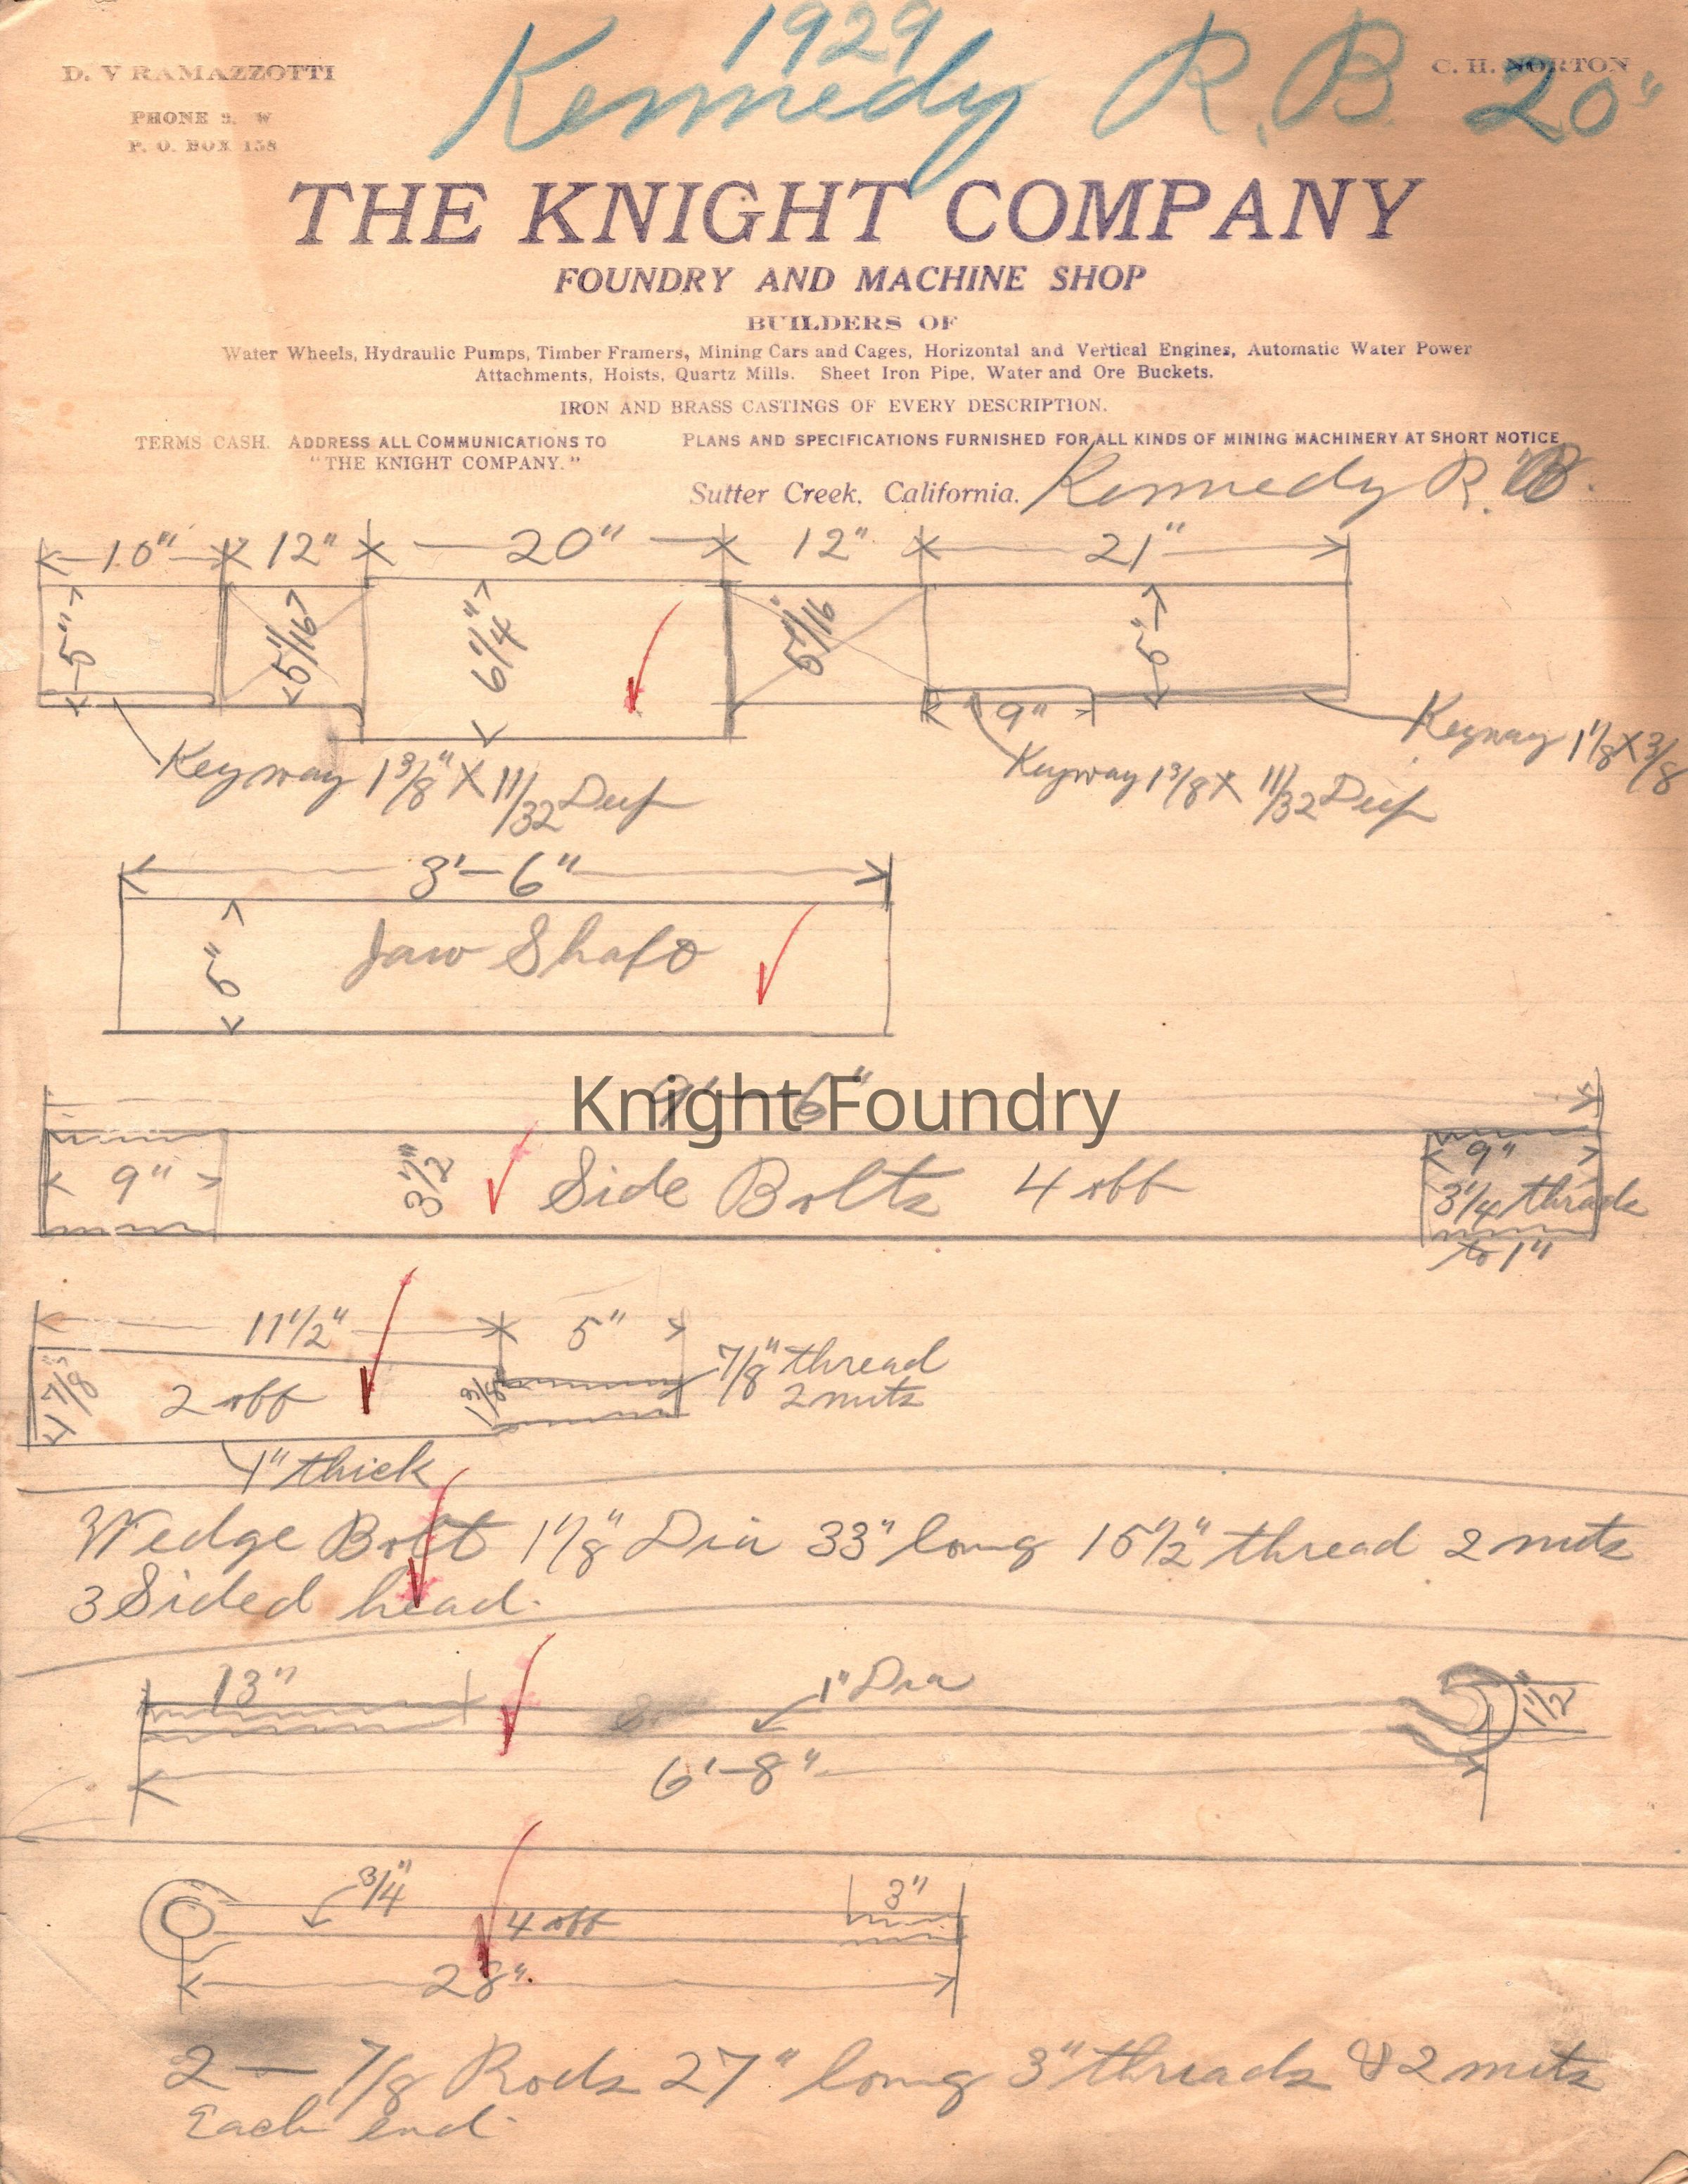 1929
Kennedy R.B. 20"
D. V RAMAZZOTTI
C. H. NORTON
PHONE 3. W
P. O. BOX 158
THE KNIGHT COMPANY
FOUNDRY AND MACHINE SHOP
BUILDERS OF
Water Wheels, Hydraulic Pumps, Timber Framers, Mining Cars and Cages, Horizontal and Vertical Engines, Automatic Water Power
Attachments, Hoists, Quartz Mills. Sheet Iron Pipe, Water and Ore Buckets.
IRON AND BRASS CASTINGS OF EVERY DESCRIPTION.
TERMS CASH. ADDRESS ALL COMMUNICATIONS TO
"THE KNIGHT COMPANY."
PLANS AND SPECIFICATIONS FURNISHED FOR ALL KINDS OF MINING MACHINERY AT SHORT NOTICE
Sutter Creek, California, Kennedy R. B.
10" 12" 20" 12" 21"
5" 5 1/16" 6 1/4" 5"
9"
Keyway 1 3/8" X 11/32 Deep
Keyway 1 3/8 X 11/32 Deep
Keyway 1 1/8 X 3/8
3'-6"
5"
Jaw Shaft
6"
Knight Foundry
9" 3 1/2" Side Bolts 4 off 9"
3 1/4 threads
to 1"
11 1/2" 5"
7/8" thread
2 nuts
2 off 1 3/8
1" thick
Wedge Bolt 1 1/8" Dia 33" long 15 1/2" thread 2 nuts
3 Sided head.
13" 1" Dia 1 1/2"
6'-8"
3/4" 4 off 3"
28"
2 — 7/8 Rods 27" long 3" threads & 2 nuts
Each end